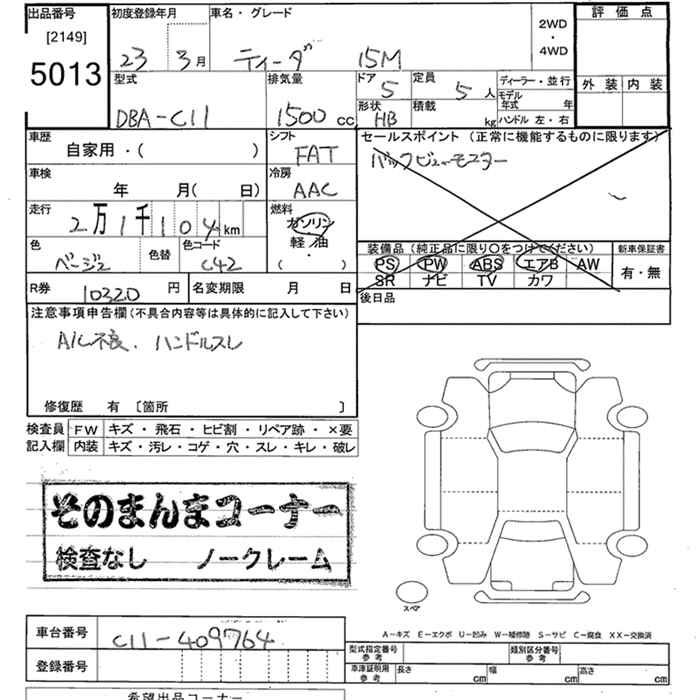 出品番号
[2149]
5013
初度登録年月
23 3月
車名・グレード
ティーダ 15M
2WD
・
4WD
評価点
外装 内装
型式
DBA-C11
排気量
1500 cc
ドア
5
定員
5人
ディーラー・並行
モデル年式 年
形状
HB
積載
kg
ハンドル 左・右
車歴
自家用・( )
シフト
FAT
セールスポイント(正常に機能するものに限ります)
バックビューモニター
車検
年 月( 日)
冷房
AAC
走行
2万1千104km
燃料
ガソリン
軽油
・( )
色
ベージュ
色替
色コード
C42
装備品(純正品に限り○をつけてください)
PS PW ABS エアB AW
SR ナビ TV カワ
新車保証書
有・無
R券
10320円
名変期限 月 日
後日品
注意事項申告欄(不具合内容等は具体的に記入して下さい)
A/C不良、ハンドルスレ
修復歴 有 〔箇所 〕
検査員記入欄
FW キズ・飛石・ヒビ割・リペア跡・×要
内装 キズ・汚レ・コゲ・穴・スレ・キレ・破レ
そのまんまコーナー
検査なし ノークレーム
スペア
A-キズ E-エクボ U-凹み W-補修跡 S-サビ C-腐食 XX-交換済
車台番号
C11-409764
登録番号
型式指定番号 参考
類別区分番号 参考
車庫証明用 参考
長さ cm 幅 cm 高さ cm
希望出品コーナー